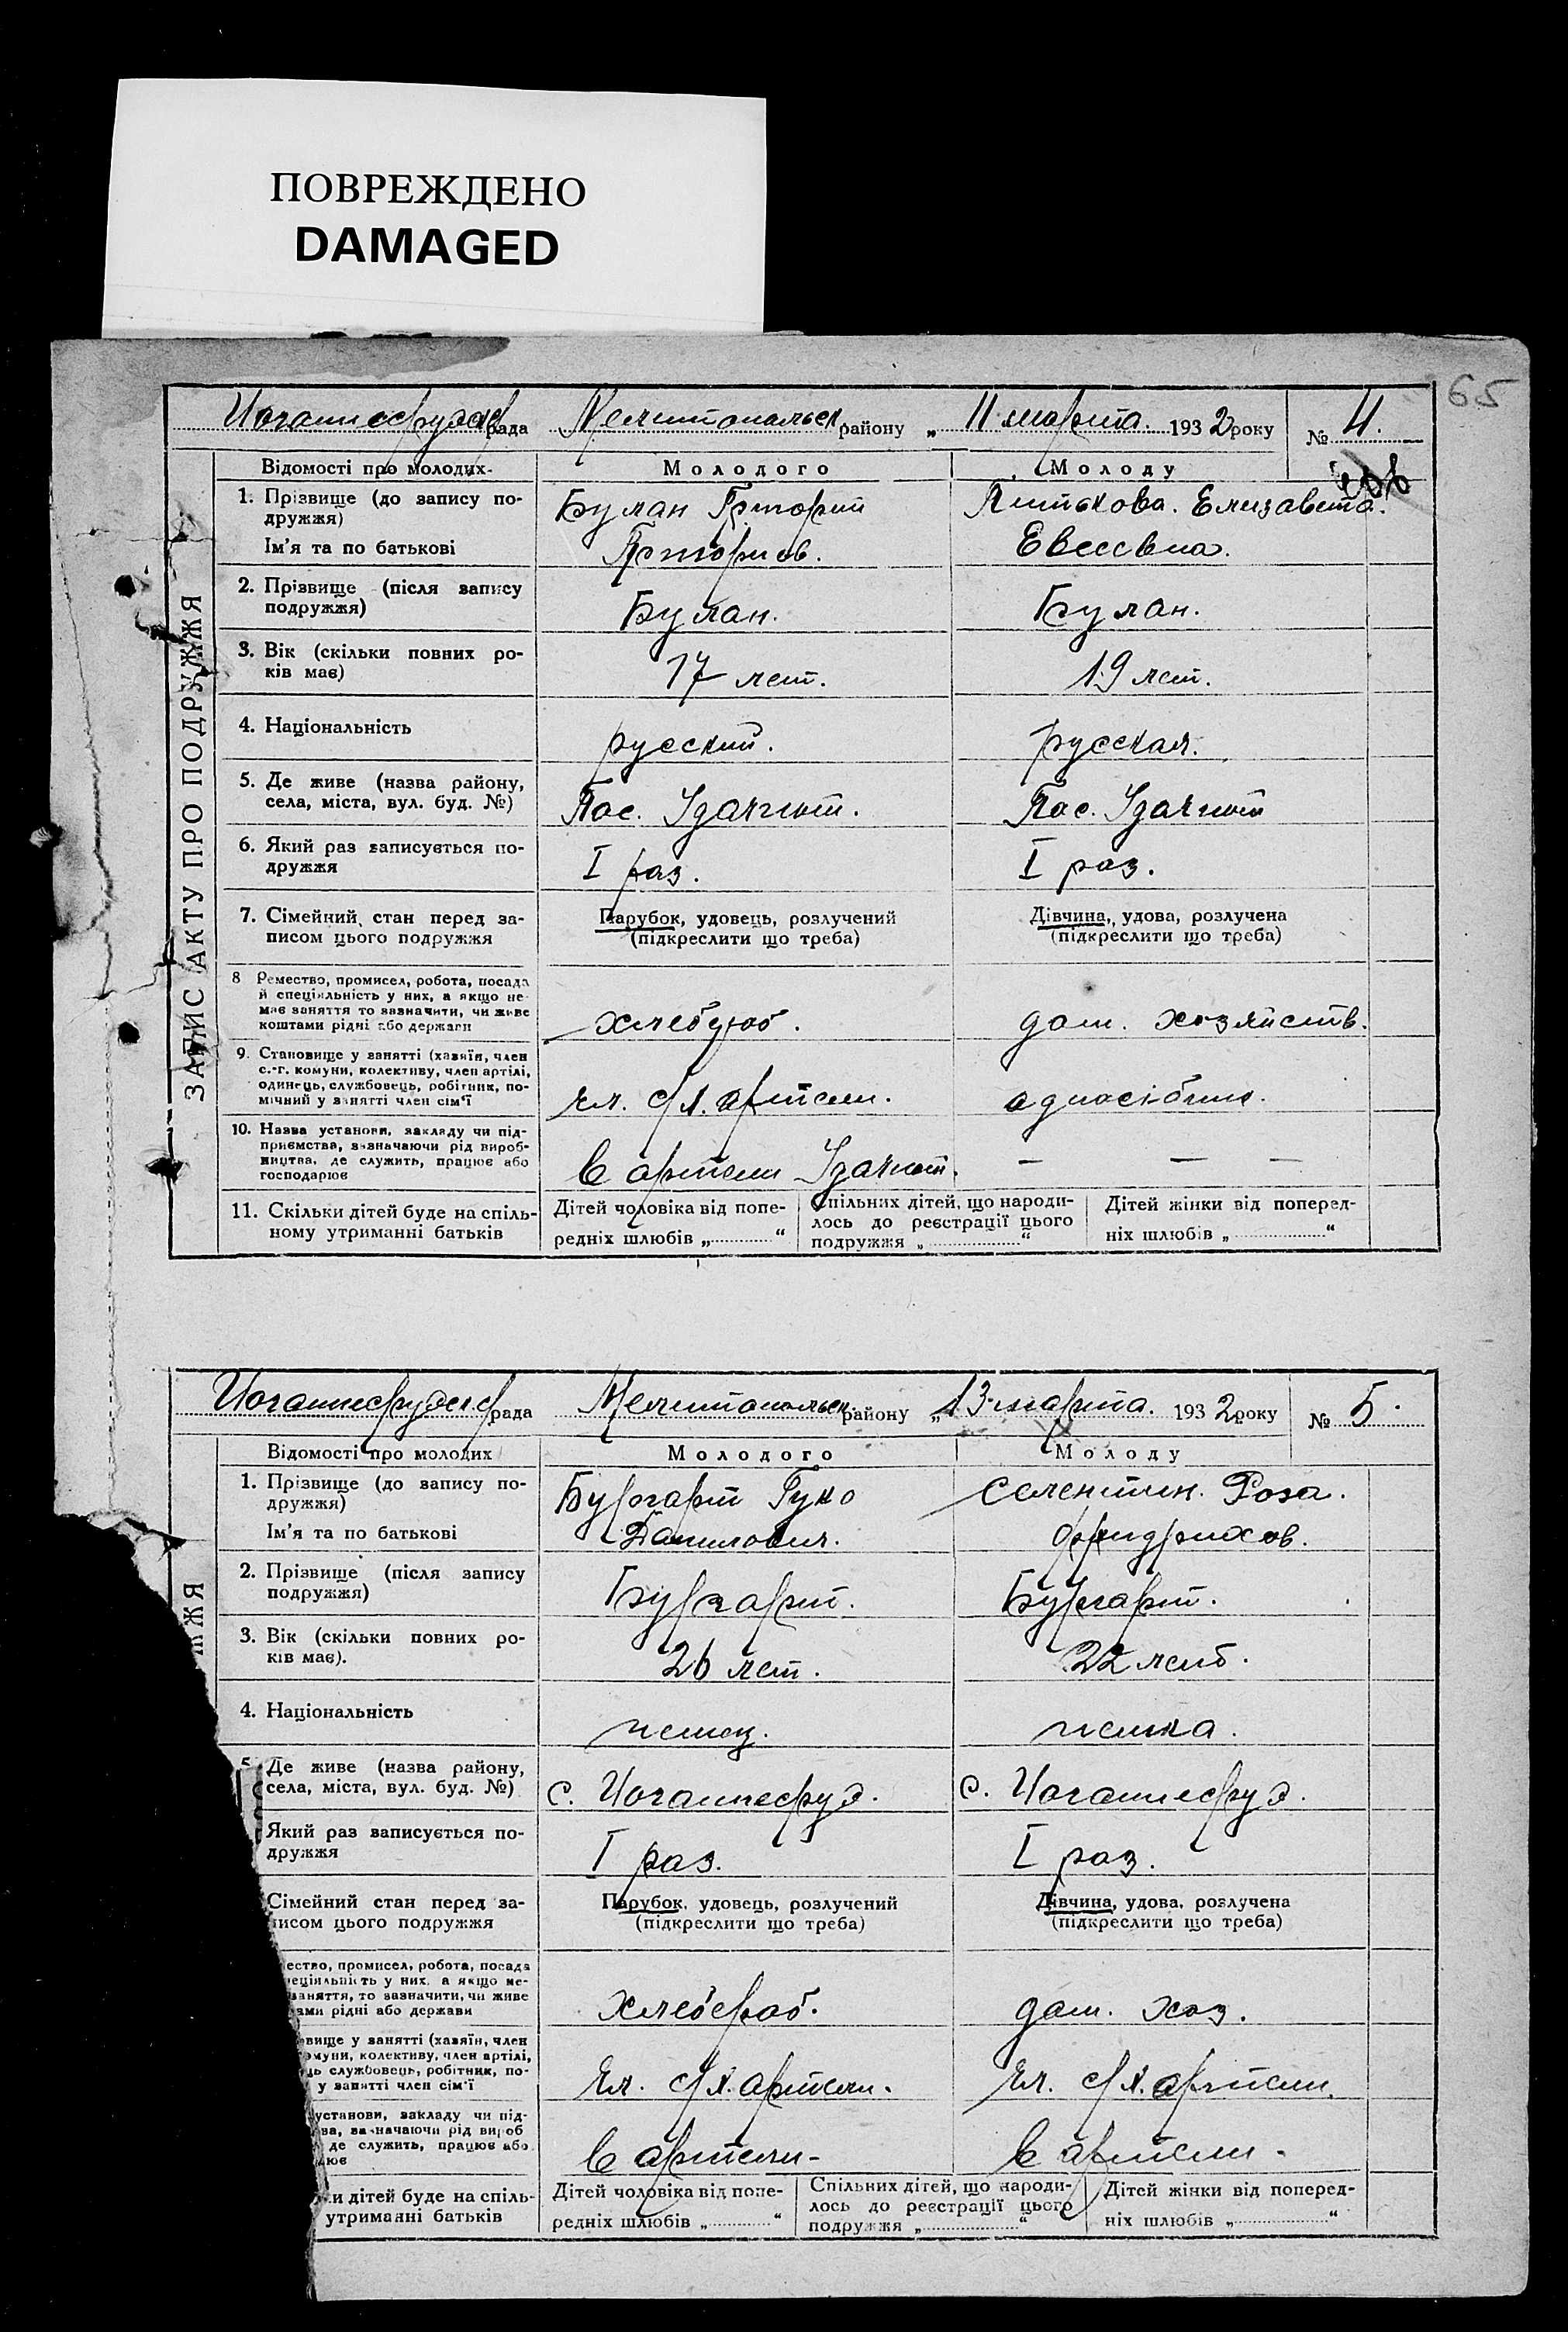 ПОВРЕЖДЕНО
DAMAGED
65
рада Мелитопольск району „ 11 марта. 1932 року № 4.
Відомості про молодих· Молодого Молоду
1. Прізвище (до запису по- Булан Григорий Елизавета.
дружжя)
Ім'я та по батькові Григорьев.
2. Прізвище (після запису Булан. Булан.
подружжя)
3. Вік (скільки повних ро- 17 лет. 19 лет.
ків має)
4. Національність русский. русская.
5. Де живе (назва району, Пос. Пос.
села, міста, вул. буд. №)
6. Який раз записується по- I раз. I раз.
дружжя
7. Сімейний стан перед за- Парубок, удовець, розлучений Дівчина, удова, розлучена
писом цього подружжя (підкреслити що треба) (підкреслити що треба)
8 Ремество, промисел, робота, посада
й спеціяльність у них, а якщо не
має заняття то зазначити, чи живе дом. хозяйств.
коштами рідні або держави
9. Становище у занятті (хазяїн, член
с.-г. комуни, колективу, член артілі,
одинець, службовець, робітник, по- чл. с/х. артели.
мічний у занятті член сім'ї
10. Назва установи, закладу чи під-
приємства, зазначаючи рід вироб-
ництва, де служить, працює або в артели — — —
господарює
11. Скільки дітей буде на спіль- Дітей чоловіка від попе- Спільних дітей, що народи- Дітей жінки від поперед-
ному утриманні батьків редніх шлюбів „ “ лось до реєстрації цього ніх шлюбів „ “
подружжя „ “
ЗАПИС АКТУ ПРО ПОДРУЖЖЯ
рада Мелитопольск. району „13 марта. 1932 року № 5.
Відомості про молодих Молодого Молоду
1. Прізвище (до запису по- Бургарт Гуко Роза.
дружжя)
Ім'я та по батькові Данилович. Фридрихов.
2. Прізвище (після запису Бургарт. Бургарт.
подружжя)
3. Вік (скільки повних ро- 26 лет. 22 лет.
ків має).
4. Національність немец. немка.
5 Де живе (назва району, с. Иоганнесруэ. с. Иоганнесруэ.
села, міста, вул. буд. №)
Який раз записується по- I раз. I раз.
дружжя
Сімейний стан перед за- Парубок, удовець, розлучений Дівчина, удова, розлучена
писом цього подружжя (підкреслити що треба) (підкреслити що треба)
ество, промисел, робота, посада
еціяльність у них, а якщо не-
заняття, то зазначити, чи живе хлебороб. дом. хоз.
ами рідні або держави
овище у занятті (хазяїн, член
омуни, колективу, член артілі,
ць службовець, робітник, по- чл. с/х. артели. чл. с/х. артели.
у занятті член сім'ї
установи, закладу чи під-
ва, зазначаючи рід вироб
де служить, працює або в артели- в артели-
ює
ки дітей буде на спіль- Дітей чоловіка від попе- Спільних дітей, що народи- Дітей жінки від поперед-
утриманні батьків редніх шлюбів „ “ лось до реєстрації цього ніх шлюбів „ “
подружжя „ “
ЖЖЯ